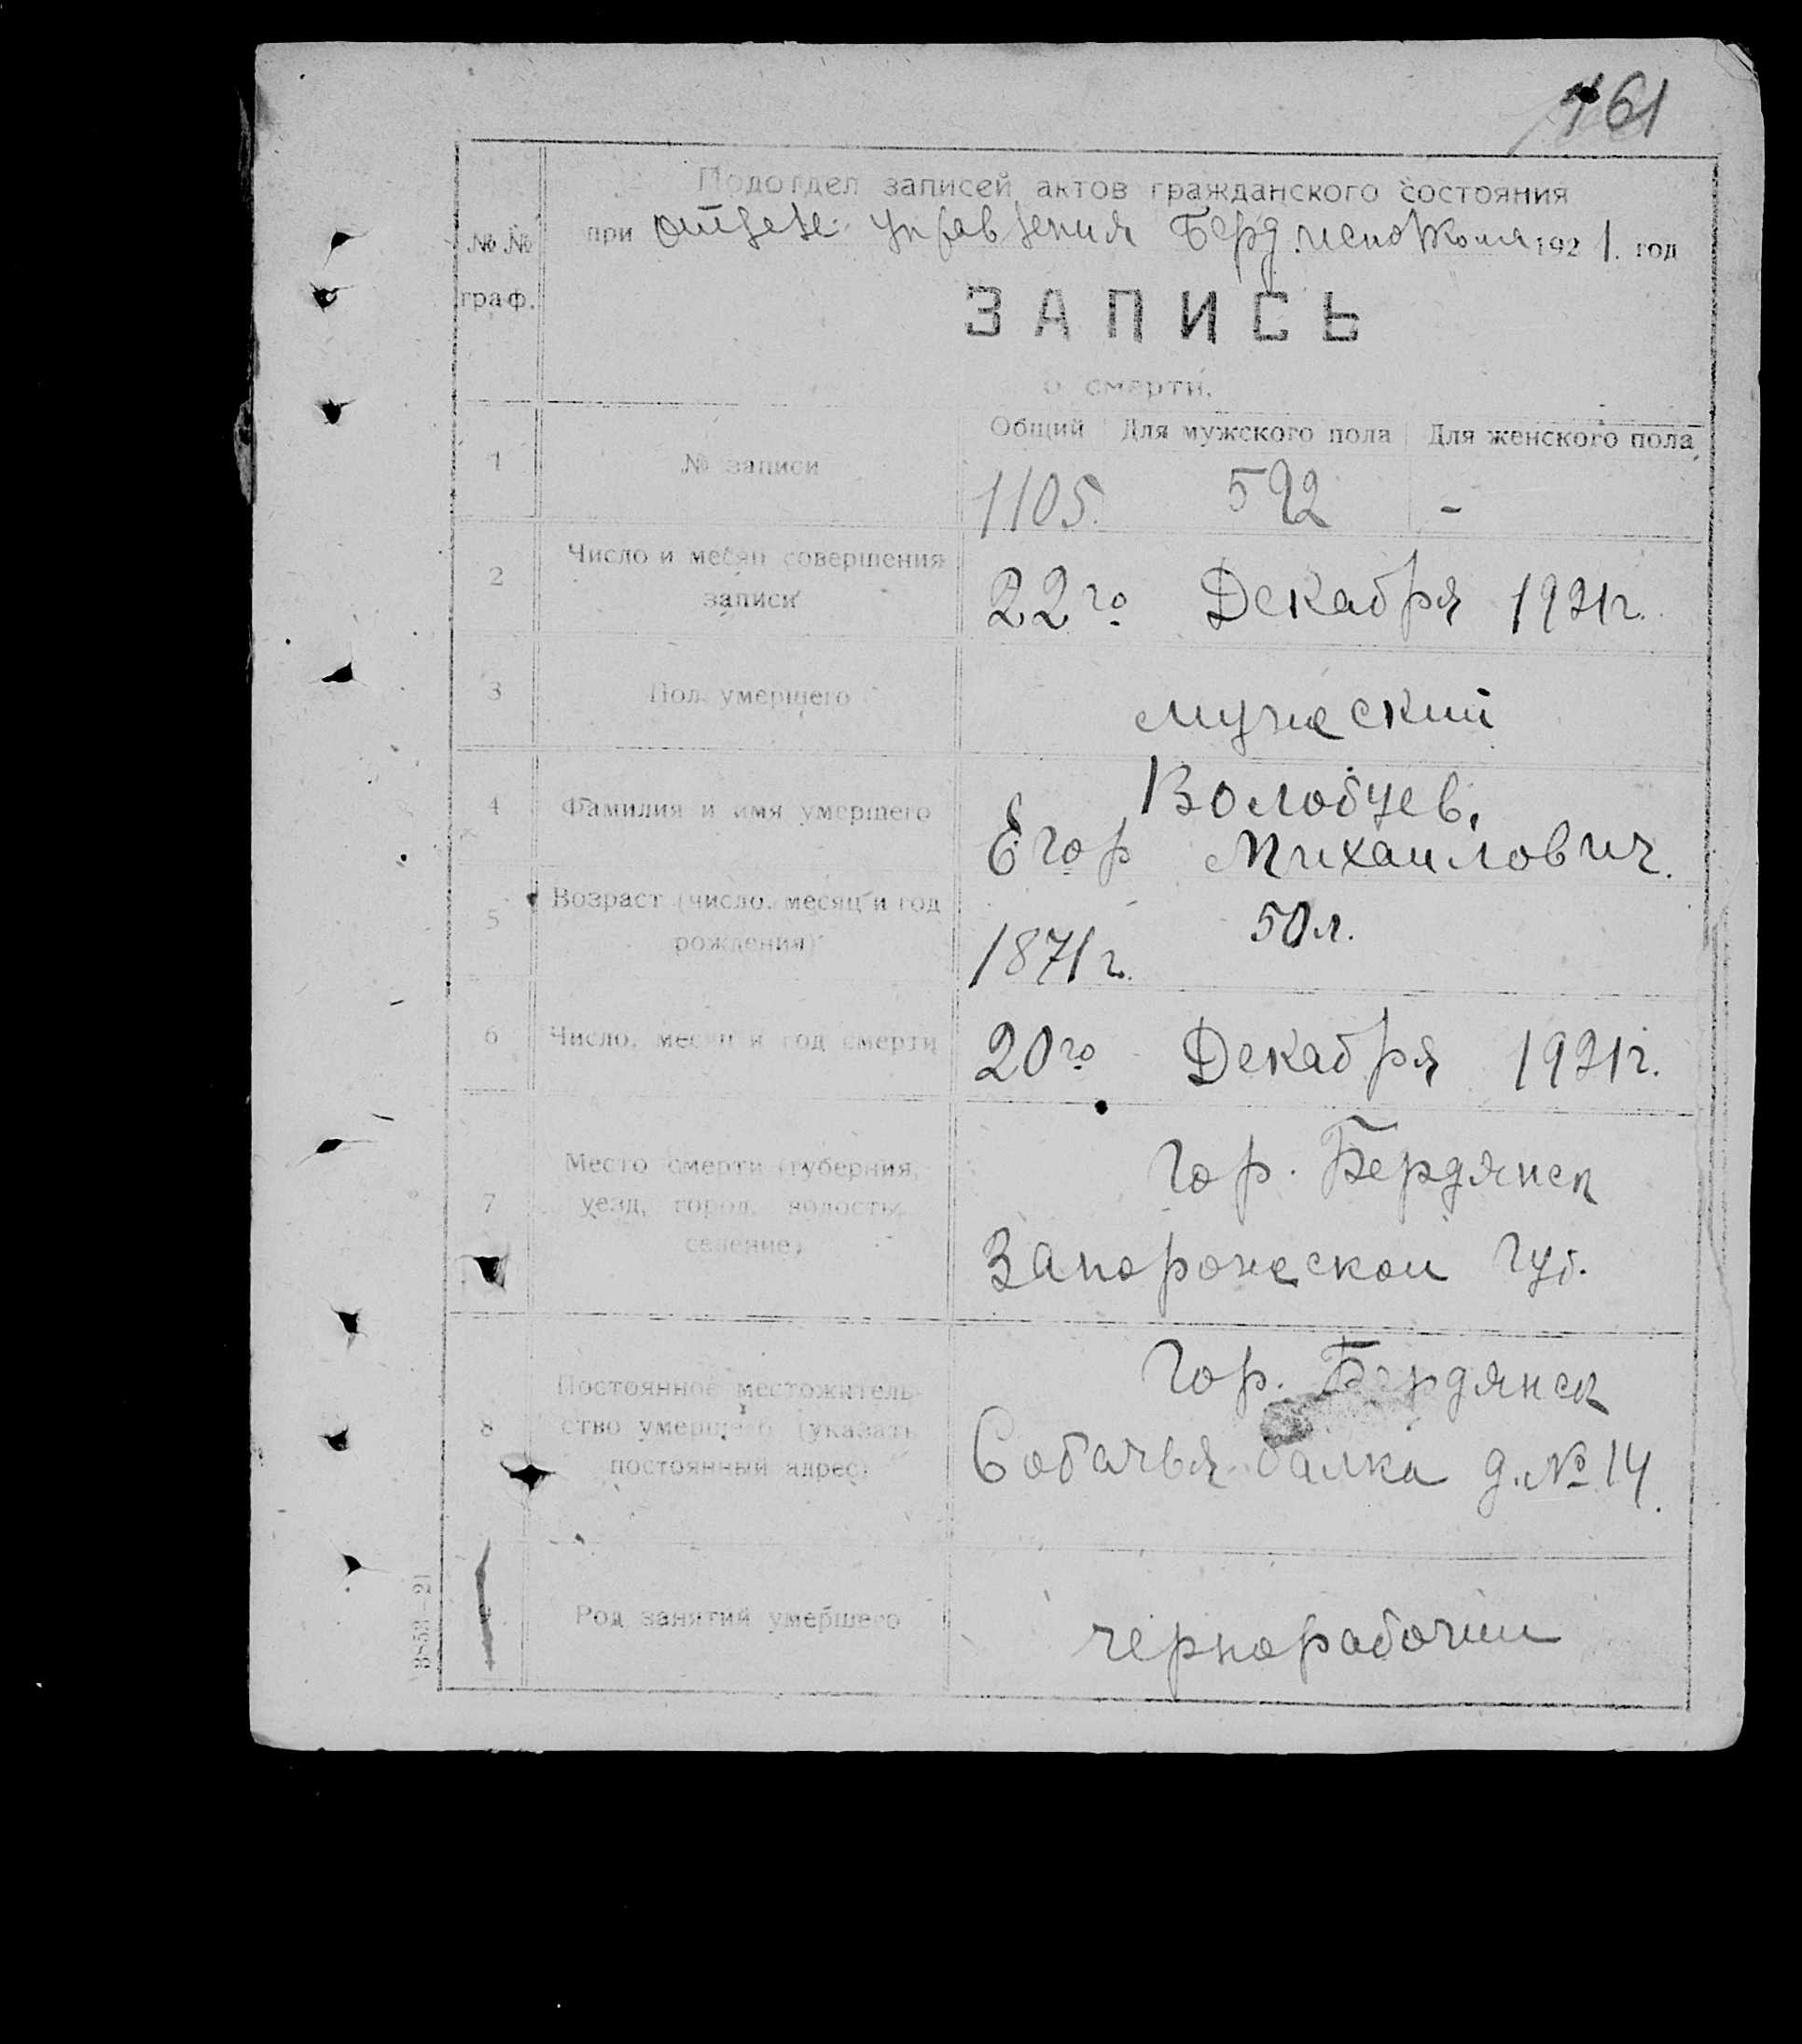 161
Подотдел записей актов гражданского состояния
№№ граф.
при отделе управления Берд. исполкома 1921. год
ЗАПИСЬ
о смерти.
Общий Для мужского пола Для женского пола
1 № записи 1105. 592 -
2 Число и месяц совершения записи
22го Декабря 1921г.
3 Пол умершего мужеский
4 Фамилия и имя умершего
Волобуев,
Егор Михаилович.
5 Возраст (число, месяц и год рождения)
50л.
1871г.
6 Число, месяц и год смерти 20го Декабря 1921г.
7 Место смерти (губерния, уезд, город, волость, селение)
Гор. Бердянск
Запорожеской Губ.
8 Постоянное местожительство умершего (указать постоянный адрес)
Гор. Бердянск
Собачья балка д. № 14.
Род занятий умершего чернорабочий
3853—21